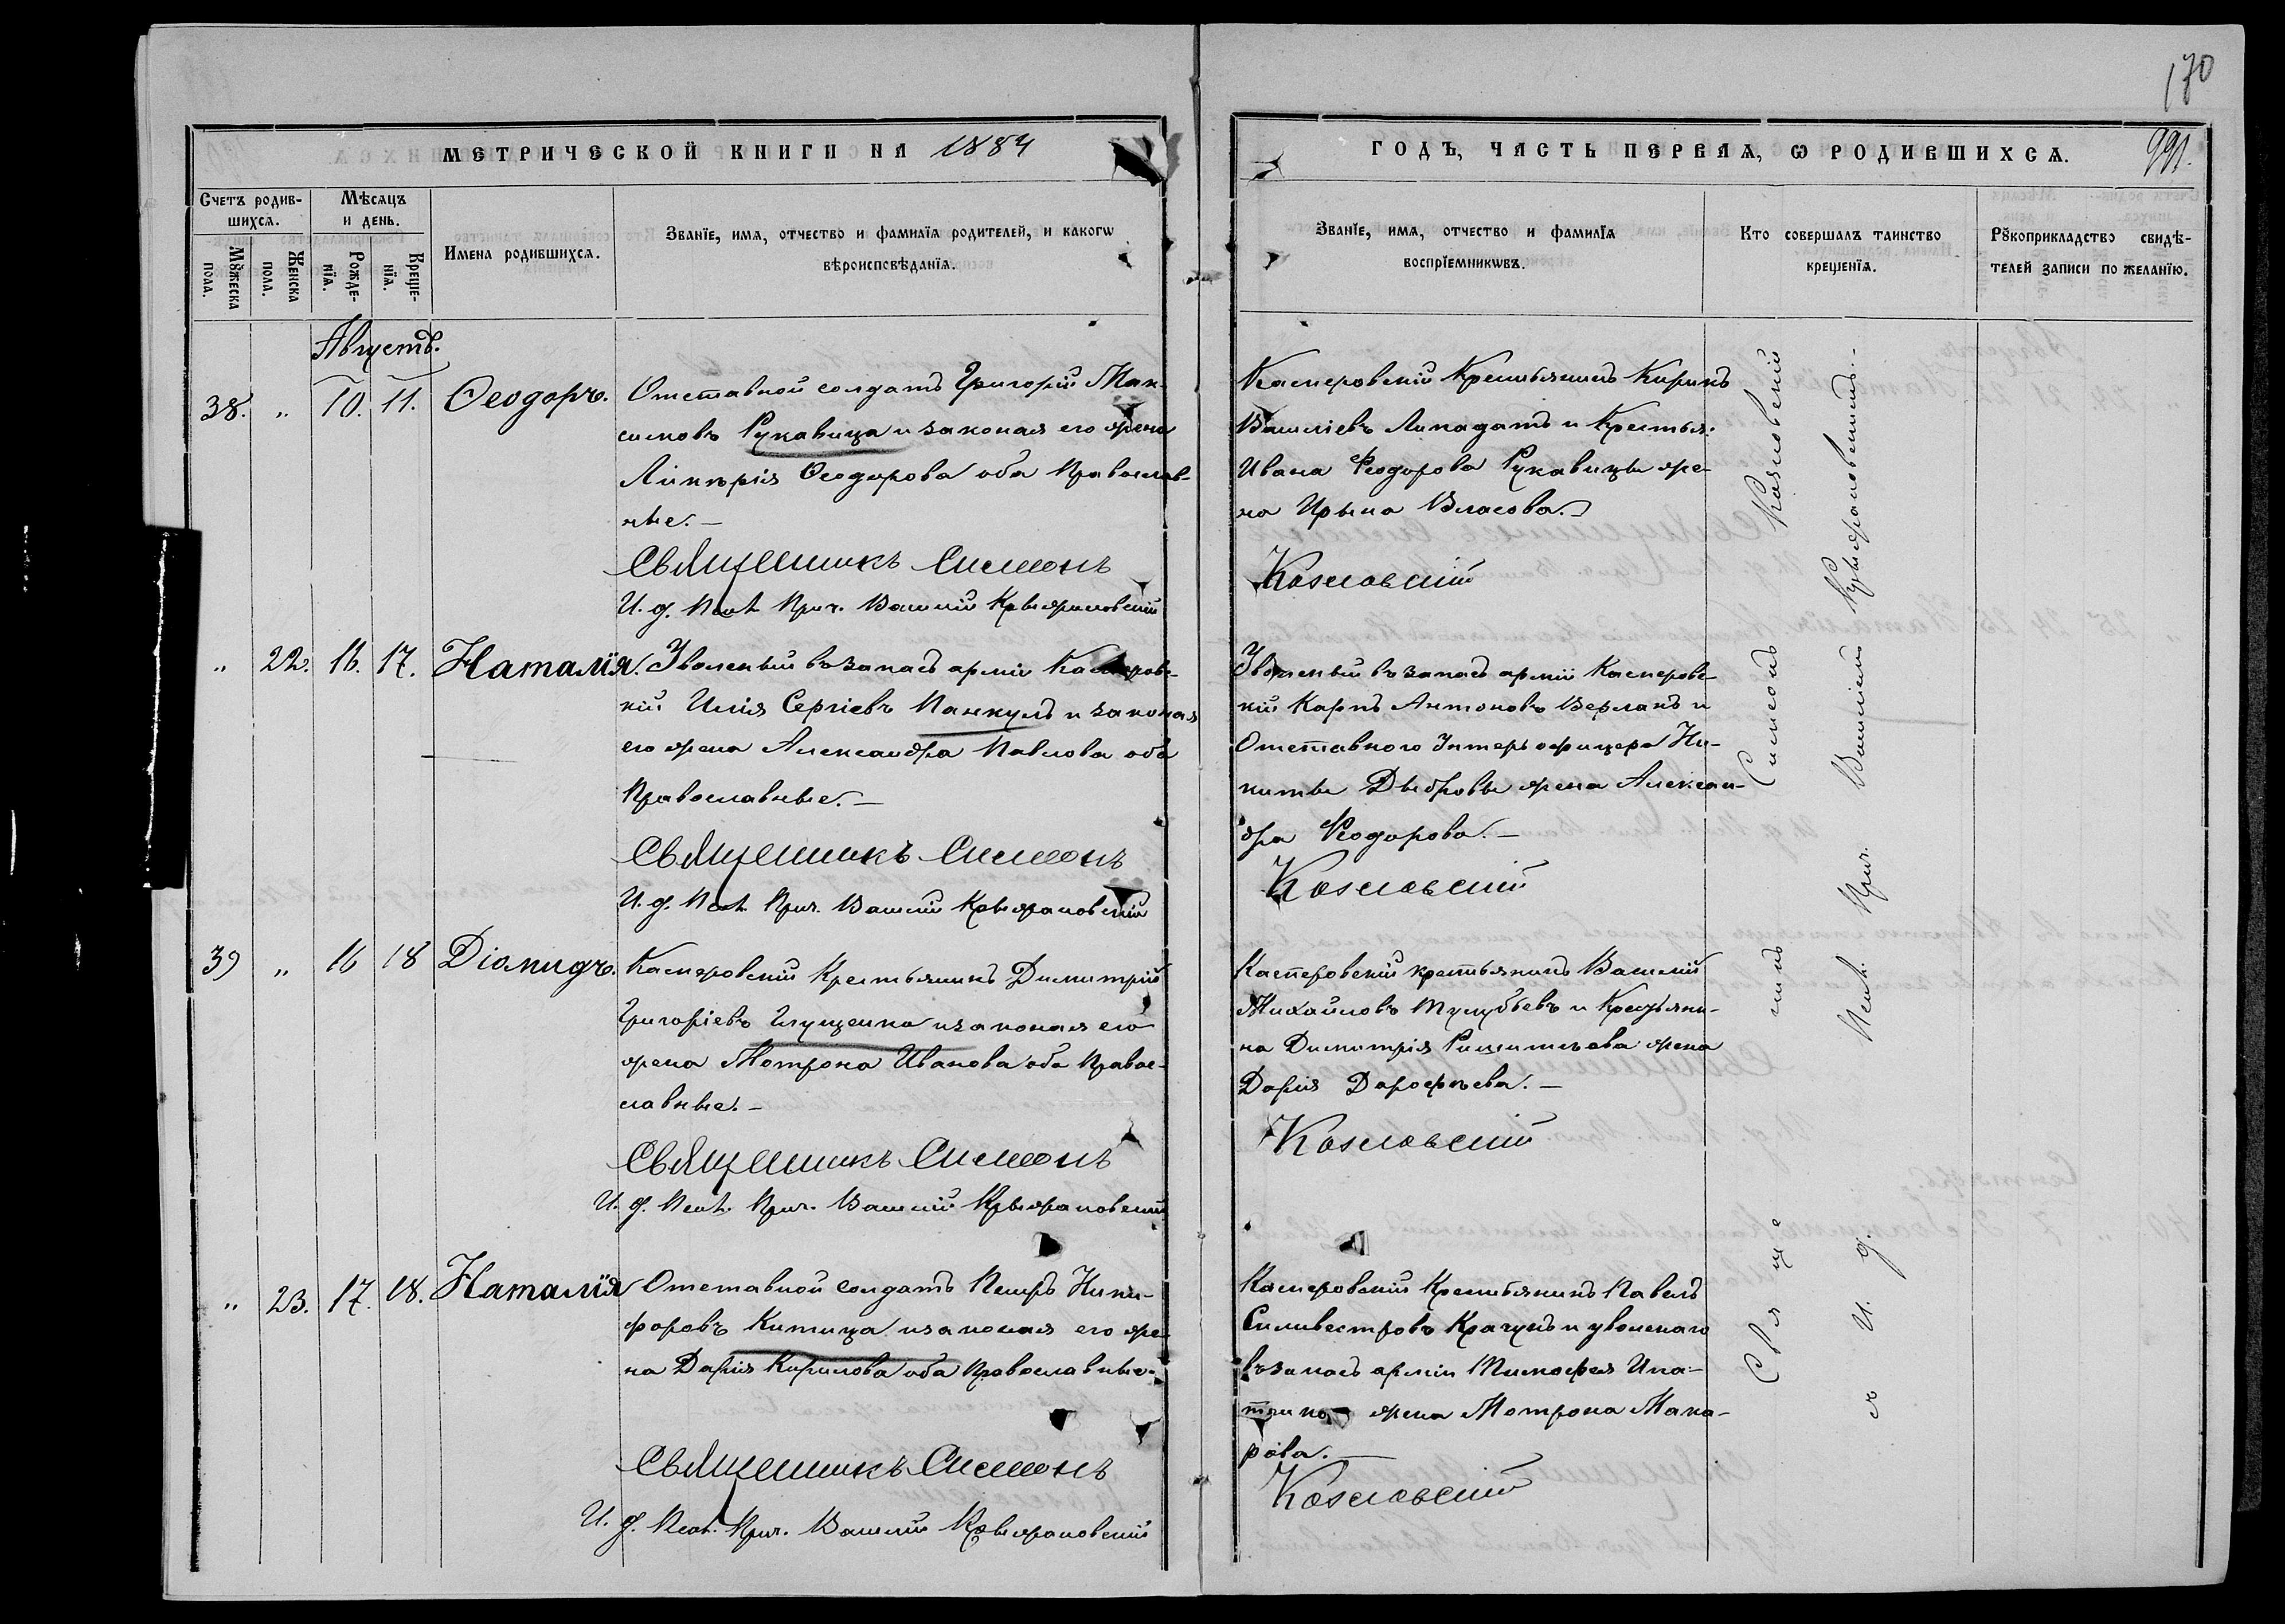 170
МЕТРИЧЕСКОЙ КНИГИ НА 1884
ГОДЪ, ЧАСТЬ ПЕРВАѦ, Ѡ РОДИВШИХСѦ.
991.
Счетъ родив-
шихсѧ.
Мꙋжеска
пола.
Женска
пола.
Мѣсѧцъ
и день.
Рожде-
нїѧ.
Креще-
нїѧ.
Имена родившихсѧ.
Званїе, имѧ, отчество и фамилїѧ родителей, и какогѡ
вѣроисповѣданїѧ.
Званїе, имѧ, отчество и фамилїѧ
воспрїемникѡвъ.
Кто совершалъ таинство
крещенїѧ.
Рꙋкоприкладство свидѣ-
телей записи по желанїю.
Августъ.
38. " 10. 11. Ѳеодоръ.
Отставной солдатъ Григорій Мак-
симовъ Рукавица и законая его жена
Ѳеодорова оба Православ-
ные.—
Священникъ Симеонъ
И. д. Псал. Прич. Василій Крыжановскій
Касперовскій Крестьянинъ Кирилъ
Василіевъ Липадатъ и Крестья:
Ивана Ѳеодорова Рукавицы же-
на Ирина Власова.
Козловскій
" 22. 16. 17. Наталія.
Уволеный въ запасъ арміи Касперовс-
кій Илія Сергіевъ Панкулъ и законая
его жена Александра Павлова оба
Православные.—
Священникъ Симеонъ
И. д. Псал. Прич. Василій Крыжановскій
Уволеный въ запасъ арміи Касперовс-
кій Карпъ Антоновъ Верланъ и
Отставного Унтеръ офицера Ни-
киты Дыбровы жена Алексан-
дра Ѳеодорова.—
Козловскій
39 " 16 18 Діомидъ.
Касперовскій Крестьянинъ Димитрій
Григоріевъ Глущенко и законая его
жена Мотрона Иванова оба Право-
славные.—
Священникъ Симеонъ
И. д. Псал. Прич. Василій Крыжановскій
Касперовскій крестьянинъ Василій
Михайловъ и Крестьяни-
на Димитрія жена
Дарія Дорофѣева.—
Козловскій
" 23. 17. 18. Наталія
Отставной солдатъ Петръ Ники-
форовъ Китица и законая его же-
на Дарія Кирилова оба Православные.
Священникъ Симеонъ
И. д. Псал. Прич. Василій Крыжановскій
Касперовскій Крестьянинъ Павелъ
Силивестровъ Крачунъ и уволенаго
въ запасъ арміи Тимофея
жена Мотрона Мака-
рова.—
Козловскій
Священникъ Симеонъ Козловскій
съ И. д. Псал. Прич. Василіемъ Крыжановскимъ.—